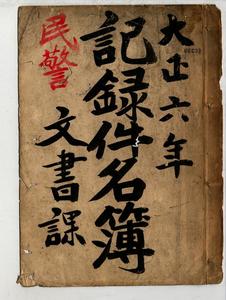 大正六年
記録件名簿
文書課
民警